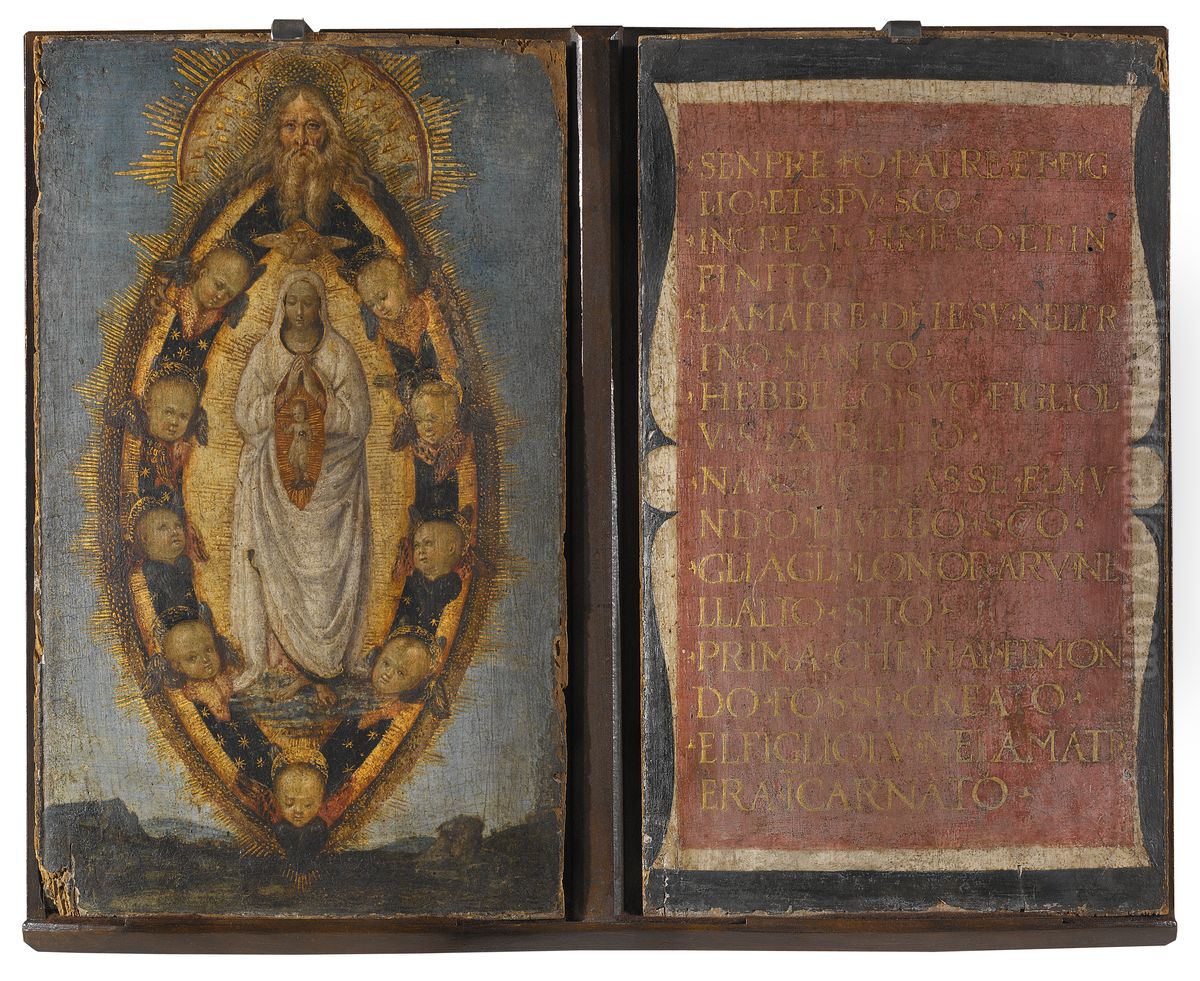 ·SENPRE·FO·PATRE·ET·FIG
LIO·ET·SPV̄·SCO·
·INCREATO·ĪMĒSO·ET·IN
FINITO·
·LAMATRE·DE·IESV·NELTR
INO·MANTO·
·HEBBE·LO·SVO·FIGLIOL
V·STABILITO·
·NANZI·CREASSE·ELMV
NDO·SCO·
·GLI·AGLI·LONORARV·NE
LLALTO·SITO·
·PRIMA·CHE·MAI·ELMON
DO·FOSSE·CREATO·
·ELFIGLIOLV·NELAMATR
ERA·ĪCARNATO·